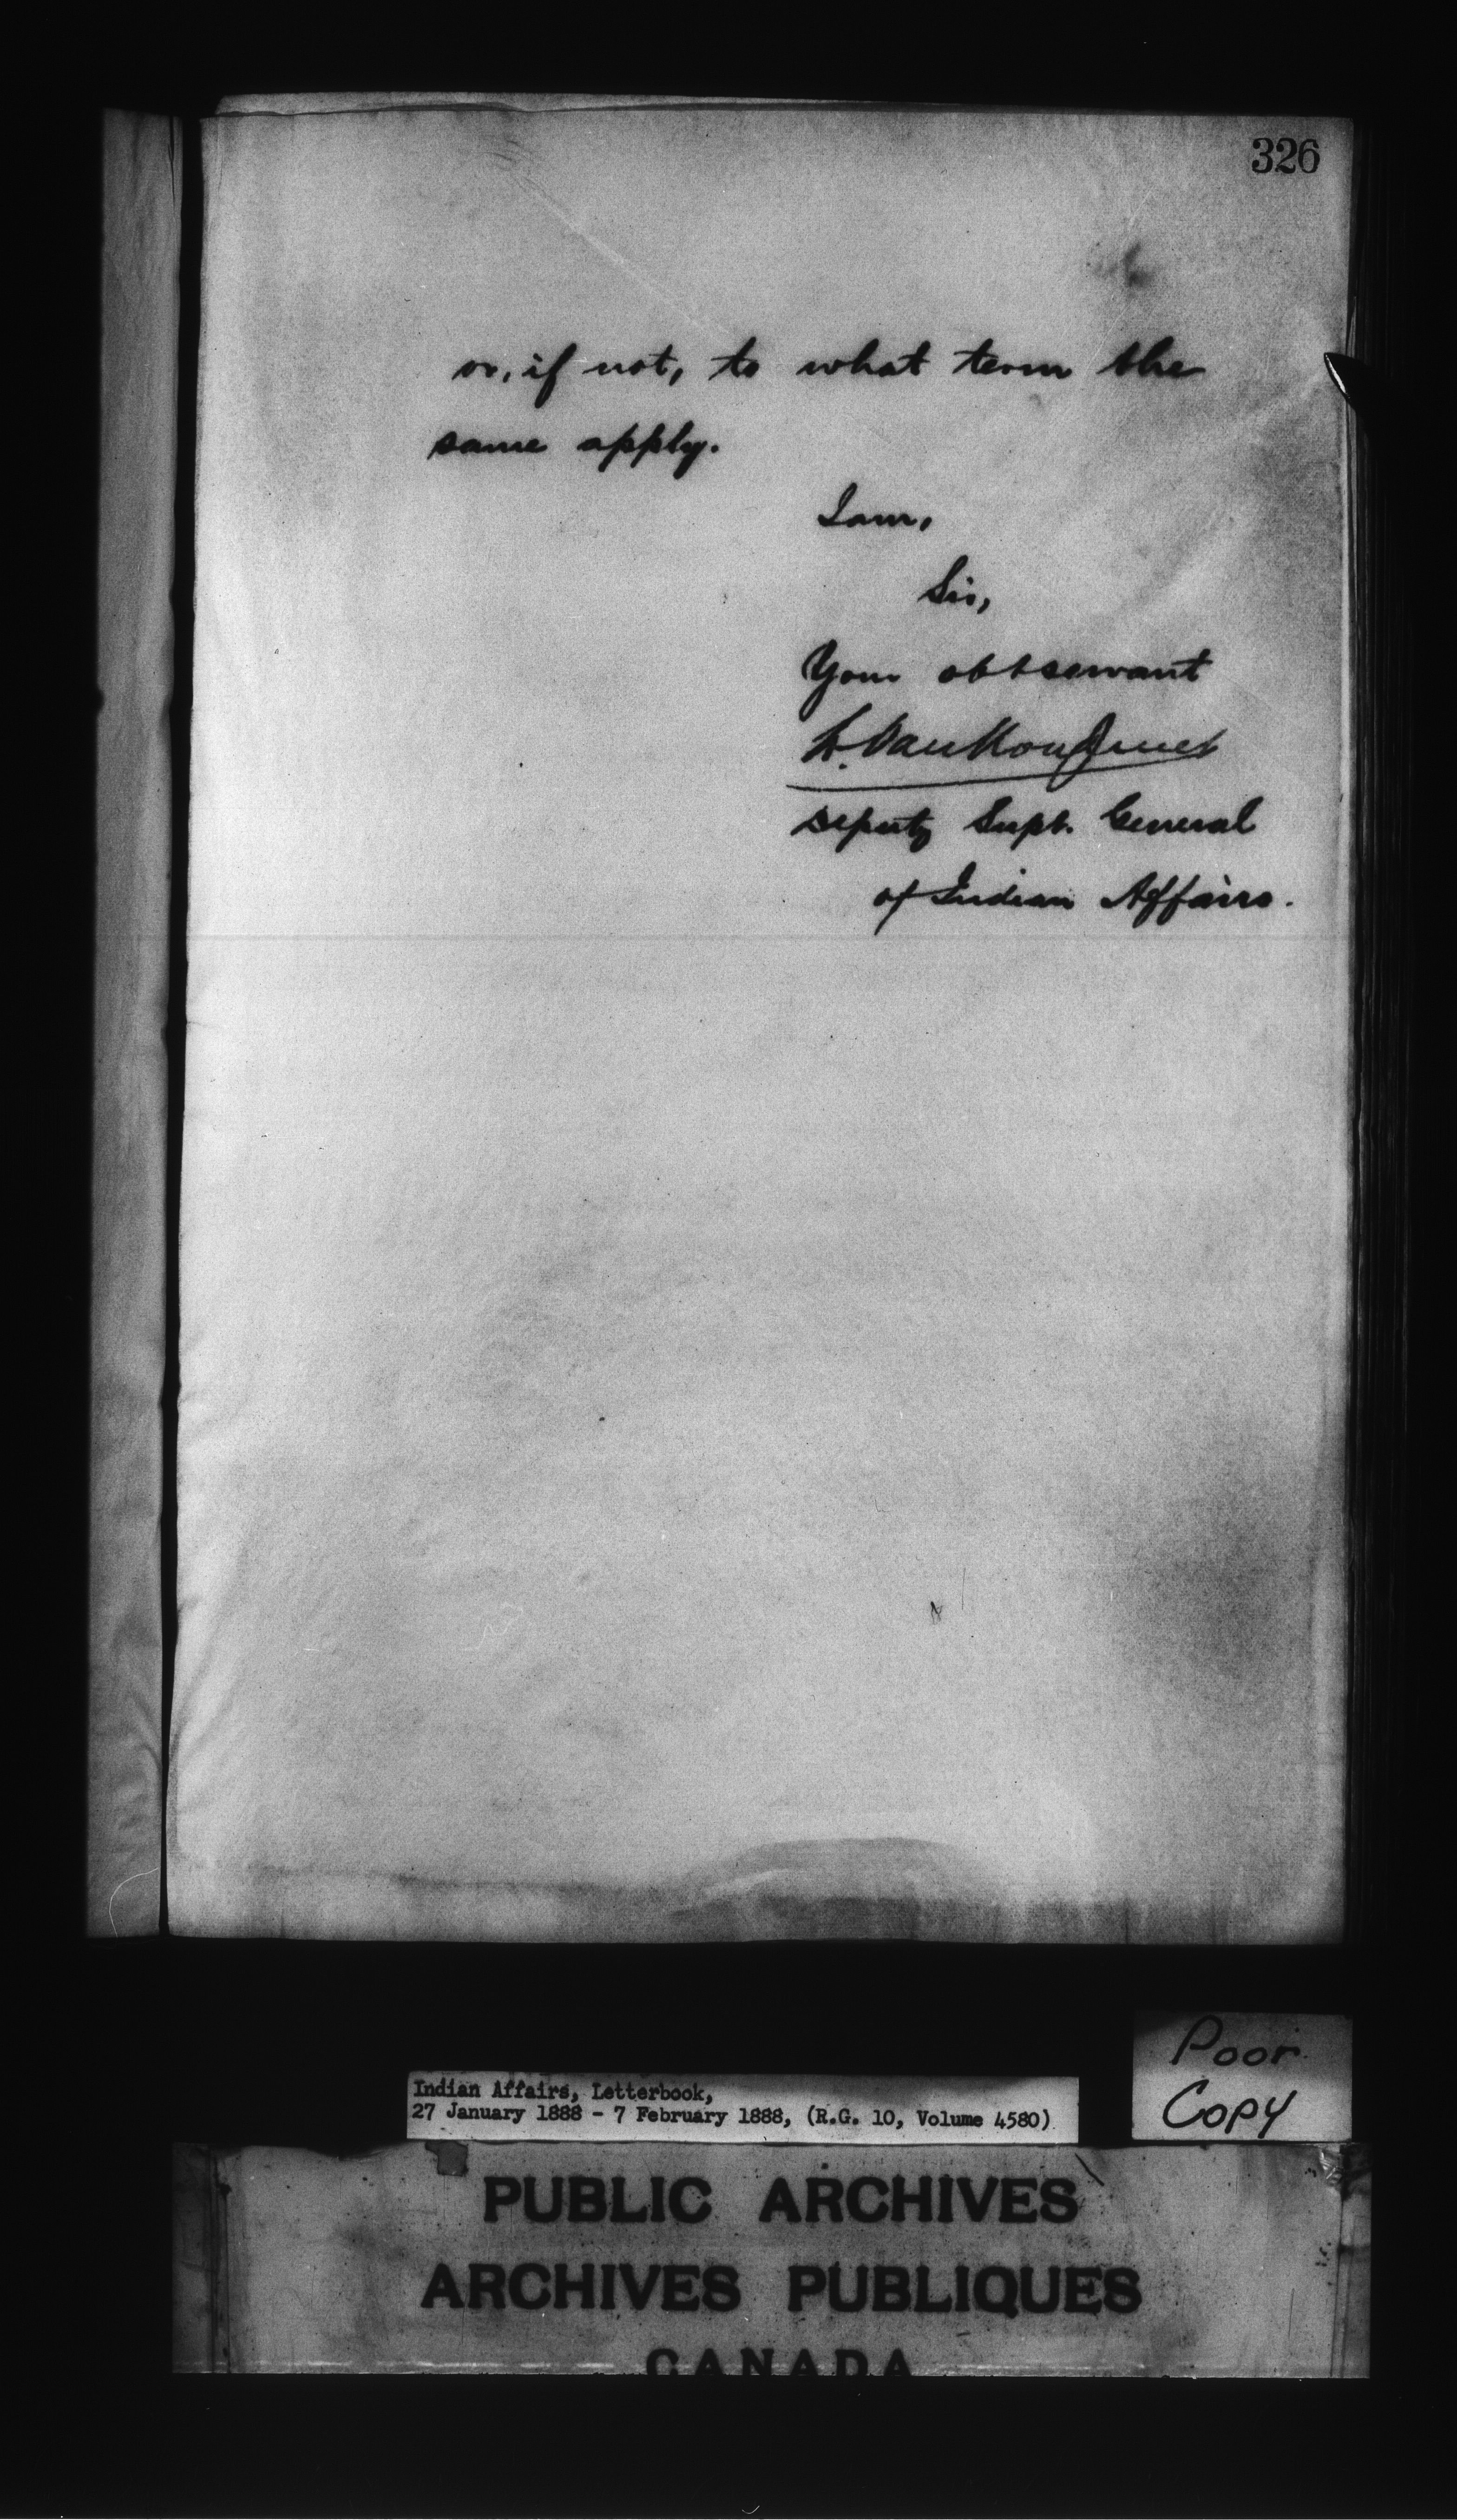 326
or, if not, to what term the
same apply.
I am,
Sir,
Your obt servant
L. VanKoughnet
Deputy Supt. General
of Indian Affairs.
Poor
Copy
Indian Affairs, Letterbook,
27 January 1888 - 7 February 1888, (R.G. 10, Volume 4580)
PUBLIC ARCHIVES
ARCHIVES PUBLIQUES
CANADA